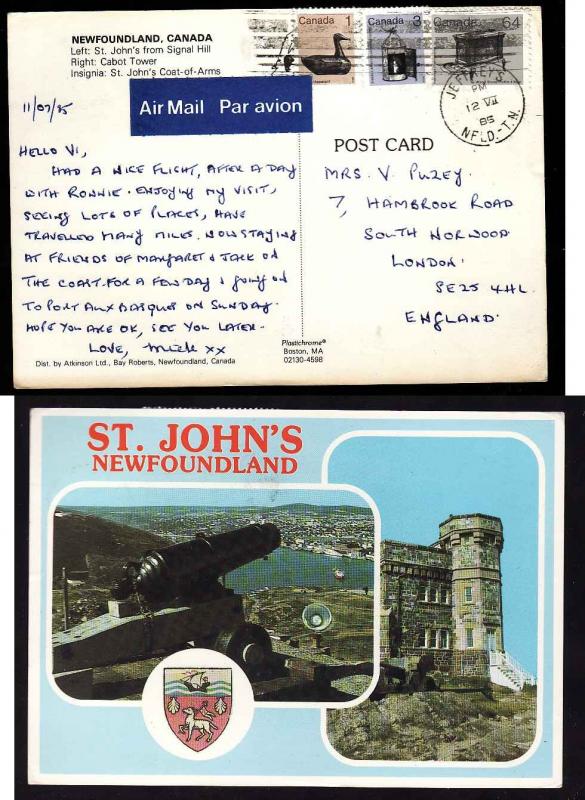 NEWFOUNDLAND, CANADA
Left: St. John's from Signal Hill
Right: Cabot Tower
Insignia: St. John's Coat-of-Arms
Canada 1
Canada 3
Canada 64
JEFFREY'S
PM
12 VII
85
NFLD.-T.N.
Air Mail Par avion
11/07/85
HELLO VI,
HAD A NICE FLIGHT, AFTER A DAY
WITH RONNIE. ENJOYING MY VISIT,
SEEING LOTS OF PLACES, HAVE
TRAVELLED MANY MILES. NOW STAYING
AT FRIENDS OF MARGARET & JACK ON
THE COAST. FOR A FEW DAYS & GOING ON
TO PORT AUX BASQUES ON SUNDAY.
HOPE YOU ARE OK, SEE YOU LATER.
LOVE, Mick xx
Dist. by Atkinson Ltd., Bay Roberts, Newfoundland, Canada
POST CARD
MRS. V. PUZEY.
7, HAMBROOK ROAD
SOUTH NORWOOD
LONDON.
SE25 4HL.
ENGLAND.
Plastichrome®
Boston, MA
02130-4598
ST. JOHN'S
NEWFOUNDLAND